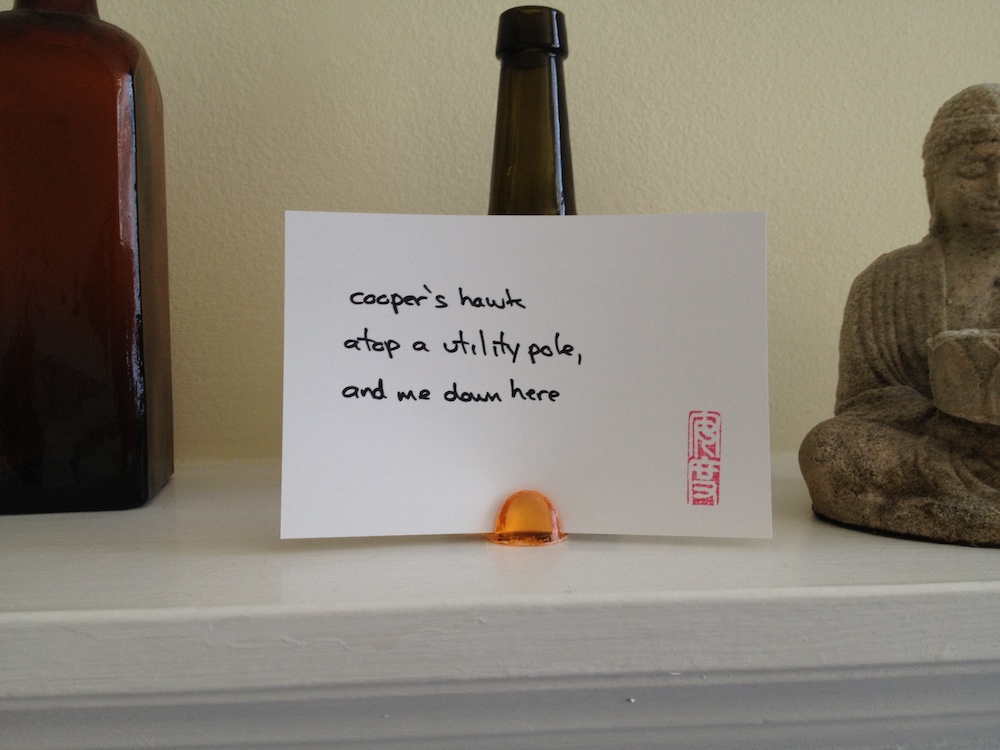 cooper's hawk
atop a utility pole,
and me down here